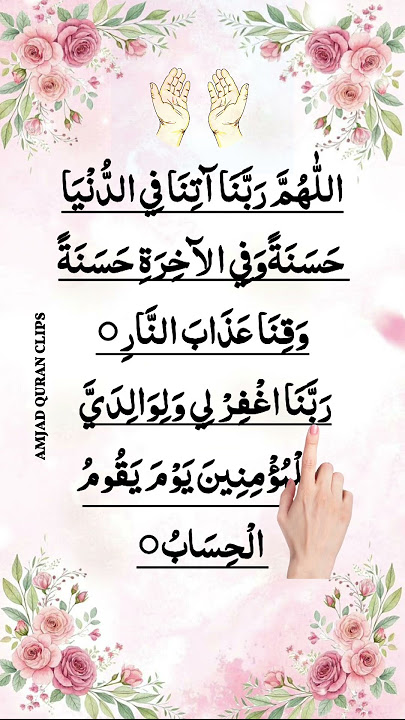 اللّٰهُمَّ رَبَّنَا آتِنَا فِي الدُّنْيَا
حَسَنَةً وَفِي الآخِرَةِ حَسَنَةً
وَقِنَا عَذَابَ النَّارِ ○
رَبَّنَا اغْفِرْ لِي وَلِوَالِدَيَّ
يَوْمَ يَقُومُ
الْحِسَابُ ○
AMJAD QURAN CLIPS